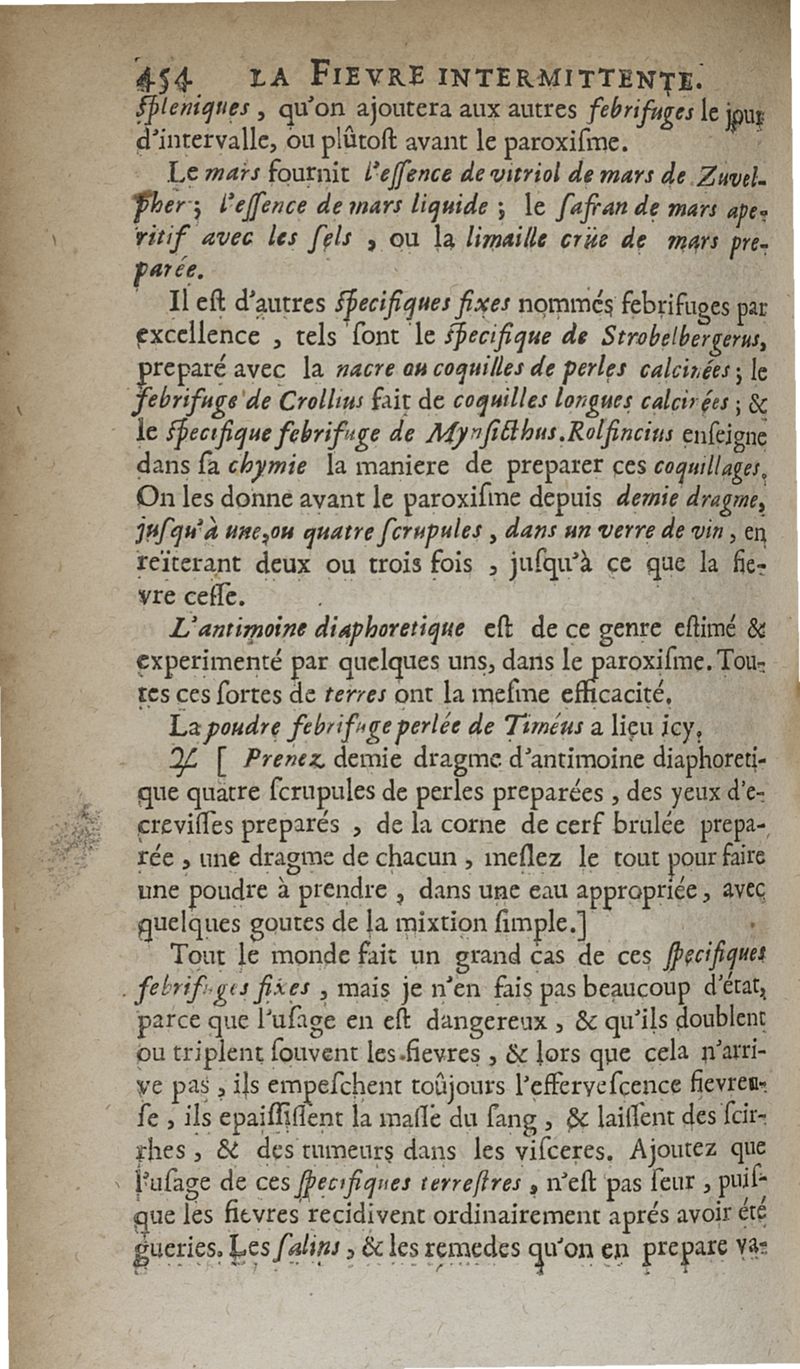 454 LA FIEVRE INTERMITTENTE.
ſpleniques, qu'on ajoutera aux autres febrifuges le jour
d'intervalle, ou plûtoſt avant le paroxiſme.
Le mars fournit l'eſſence de vitriol de mars de Zuvel-
pher; l'eſſence de mars liquide; le ſafran de mars ape-
ritif avec les ſels, ou la limaille crüe de mars pre-
parée.
Il eſt d'autres ſpecifiques fixes nommés febrifuges par
excellence, tels ſont le ſpecifique de Strobelbergerus,
preparé avec la nacre ou coquilles de perles calcinées; le
febrifuge de Crollius fait de coquilles longues calcinées; &
le ſpecifique febrifuge de Mynſicthus. Rolfincius enſeigne
dans ſa chymie la maniere de preparer ces coquillages.
On les donne avant le paroxiſme depuis demie dragme,
juſqu'à une, ou quatre ſcrupules, dans un verre de vin, en
reïterant deux ou trois fois, juſqu'à ce que la fie-
vre ceſſe.
L'antimoine diaphoretique eſt de ce genre eſtimé &
experimenté par quelques uns, dans le paroxiſme. Tou-
tes ces ſortes de terres ont la meſme efficacité.
La poudre febrifuge perlée de Timéus a lieu icy.
♃ [ Prenez demie dragme d'antimoine diaphoreti-
que quatre ſcrupules de perles preparées, des yeux d'e-
creviſſes preparés, de la corne de cerf brulée prepa-
rée, une dragme de chacun, meſlez le tout pour faire
une poudre à prendre, dans une eau appropriée, avec
quelques goutes de la mixtion ſimple.]
Tout le monde fait un grand cas de ces ſpecifiques
febrifuges fixes, mais je n'en fais pas beaucoup d'état,
parce que l'uſage en eſt dangereux, & qu'ils doublent
ou triplent ſouvent les fievres, & lors que cela n'arri-
ve pas, ils empeſchent toûjours l'efferveſcence fievreu-
ſe, ils epaiſſiſſent la maſſe du ſang, & laiſſent des ſcir-
rhes, & des tumeurs dans les viſceres. Ajoutez que
l'uſage de ces ſpecifiques terreſtres, n'eſt pas ſeur, puiſ-
que les fievres recidivent ordinairement aprés avoir été
gueries. Les ſalins, & les remedes qu'on en prepare va-